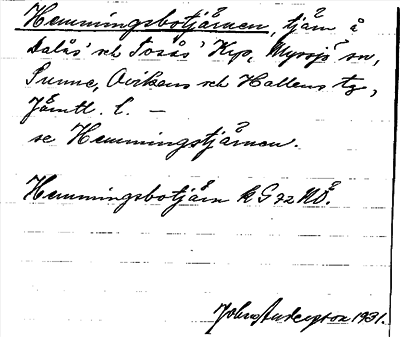 Hemmingsbotjärnen, tjärn å
Dalås' och Tosås' Kyp, Myssjö sn,
Sunne, Ovikens och Hallens tg,
Jämtl. l. —
se Hemmingstjärnen.
Hemmingsbotjärn k G 72 NÖ.
John Anderson 1931.